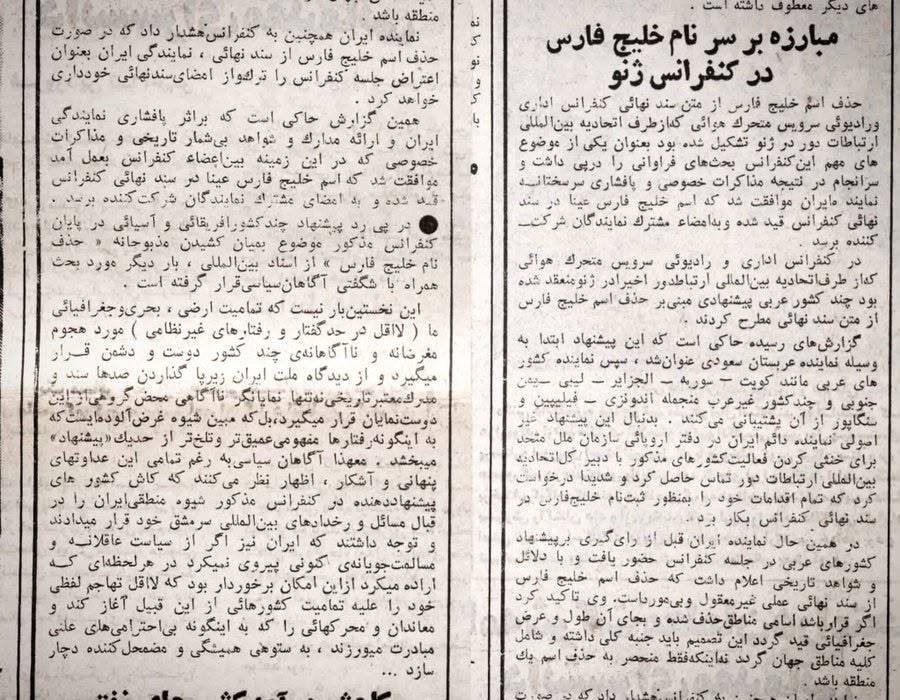 های دیگر معطوف داشته است .
مبارزه بر سر نام خلیج فارس
در کنفرانس ژنو
حذف اسم خلیج فارس از متن سند نهائی کنفرانس اداری
ورادیوئی سرویس متحرک هوائی که‌ازطرف اتحادیه بین‌المللی
ارتباطات دور در ژنو تشکیل شده بود بعنوان یکی از موضوع
های مهم این‌کنفرانس بحث‌های فراوانی را درپی داشت و
سرانجام در نتیجه مذاکرات خصوصی و پافشاری سرسختانه
نماینده ایران موافقت شد که اسم خلیج فارس عینا در سند
نهائی کنفرانس قید شده وبه‌امضاء مشترک نمایندگان شرکت‌
کننده برسد .
در کنفرانس اداری و رادیوئی سرویس متحرک هوائی
که‌از طرف‌اتحادیه بین‌المللی ارتباطدور اخیرادر ژنومنعقد شده
بود چند کشور عربی پیشنهادی مبنی‌بر حذف اسم خلیج فارس
از متن سند نهائی مطرح کردند .
گزارش‌های رسیده حاکی است که این پیشنهاد ابتدا به
وسیله نماینده عربستان سعودی عنوان‌شد ، سپس نماینده کشور
های عربی مانند کویت – سوریه – الجزایر – لیبی – یمن
جنوبی و چندکشور غیرعرب منجمله اندونزی – فیلیپین و
سنگاپور از آن پشتیبانی می‌کنند . بدنبال این پیشنهاد غیر
اصولی نماینده دائم ایران در دفتر اروپائی سازمان ملل متحد
برای خنثی کردن فعالیت‌کشورهای مذکور با دبیر کل‌اتحادیه
بین‌المللی ارتباطات دور تماس حاصل کرد و شدیدا درخواست
کرد که تمام اقدامات خود را بمنظور ثبت‌نام خلیج‌فارس در
سند نهائی کنفرانس بکار برد .
در همین حال نماینده ایران قبل از رای‌گیری برپیشنهاد
کشورهای عربی در جلسه کنفرانس حضور یافت و با دلائل
و شواهد تاریخی اعلام داشت که حذف اسم خلیج فارس
از سند نهائی عملی غیرمعقول وبی‌مورداست. وی تاکید کرد
اگر قرارباشد اسامی مناطق‌حذف شده و بجای آن طول و عرض
جغرافیائی قید گردد این تصمیم باید جنبه کلی داشته و شامل
کلیه مناطق جهان گردد نه‌اینکه‌فقط منحصر به حذف اسم یک
منطقه باشد .
منطقه باشد .
نماینده ایران همچنین به کنفرانس‌هشدار داد که در صورت
حذف اسم خلیج فارس از سند نهائی ، نمایندگی ایران بعنوان
اعتراض جلسه کنفرانس را ترک‌واز امضای‌سندنهائی خودداری
خواهد کرد .
همین گزارش حاکی است که براثر پافشاری نمایندگی
ایران و ارائه مدارک و شواهد بی‌شمار تاریخی و مذاکرات
خصوصی که در این زمینه بین‌اعضاء کنفرانس بعمل آمد
موافقت شد که اسم خلیج فارس عینا در سند نهائی کنفرانس
قید شده و به امضای مشترک نمایندگان شرکت‌کننده برسد .
● در پی رد پیشنهاد چندکشورافریقائی و آسیائی در پایان
کنفرانس مذکور موضوع بمیان کشیدن مذبوحانه « حذف
نام خلیج فارس » از اسناد بین‌المللی ، بار دیگر مورد بحث
همراه با شگفتی آگاهان‌سیاسی‌قرار گرفته است .
این نخستین‌بار نیست که تمامیت ارضی ، بحری‌وجغرافیائی
ما ( لااقل در حدگفتار و رفتارهای غیرنظامی ) مورد هجوم
مغرضانه و ناآگاهانه‌ی چند کشور دوست و دشمن قرار
میگیرد و از دیدگاه ملت ایران زیرپا گذاردن صدها سند و
مدرک‌معتبرتاریخی‌نه‌تنها نمایانگر ناآگاهی محض‌گروهی‌از‌این
دوست‌نمایان قرار میگیرد،بل‌که مبین شیوه غرض‌آلوده‌ایست‌که
به اینگونه‌ رفتارها مفهومی‌عمیق‌تر وتلخ‌تر از حدیک«پیشنهاد»
میبخشد . معهذا آگاهان سیاسی‌به رغم تمامی این عداوتهای
پنهانی و آشکار ، اظهار نظر می‌کنند که کاش کشور های
پیشنهاددهنده در کنفرانس مذکور شیوه منطقی‌ایران را در
قبال مسائل و رخدادهای بین‌المللی سرمشق خود قرار میدادند
و توجه داشتند که ایران نیز اگر از سیاست عاقلانه و
مسالمت‌جویانه‌ی کنونی پیروی نمیکرد در هرلحظه‌ای که
اراده میکرد ازاین امکان برخوردار بود که لااقل تهاجم لفظی
خود را علیه تمامیت کشورهائی از این قبیل آغاز کند و
معاندان و محرکهائی را که به اینگونه بی‌احترامی‌های علنی
مبادرت میورزند ، به ستوهی همیشگی و مضمحل‌کننده دچار
سازد ...